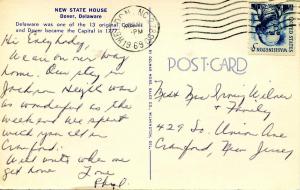 NEW STATE HOUSE
Dover, Delaware
Delaware was one of the 13 original
and Dover became the Capital in 1777
Hi Everybody,
We are on our way
home. Our stay in
Jackson was
as wonderful as the
weekend we spent
with you all in
Cranford.
Will write when we
get home Love
Phyl.
PM
69
UNITED STATES
POST-CARD
Best Mrs Irving Wilner
& Family
429 So. Union Ave
Cranford, New Jersey